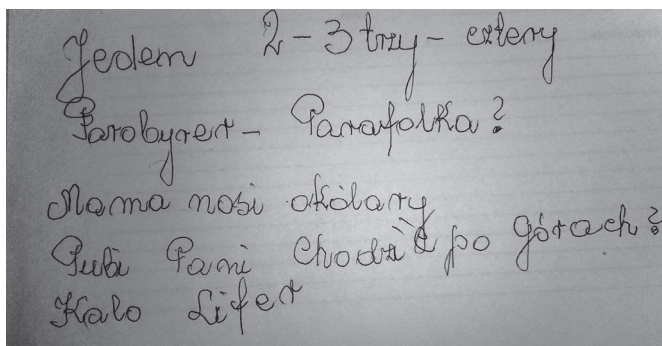 Jedem 2 - 3 trzy - cztery
Parobyrer - Parafolka?
Mama nosi okólary
Lubi Pani Chodzić po górach?
Kalo Lifer